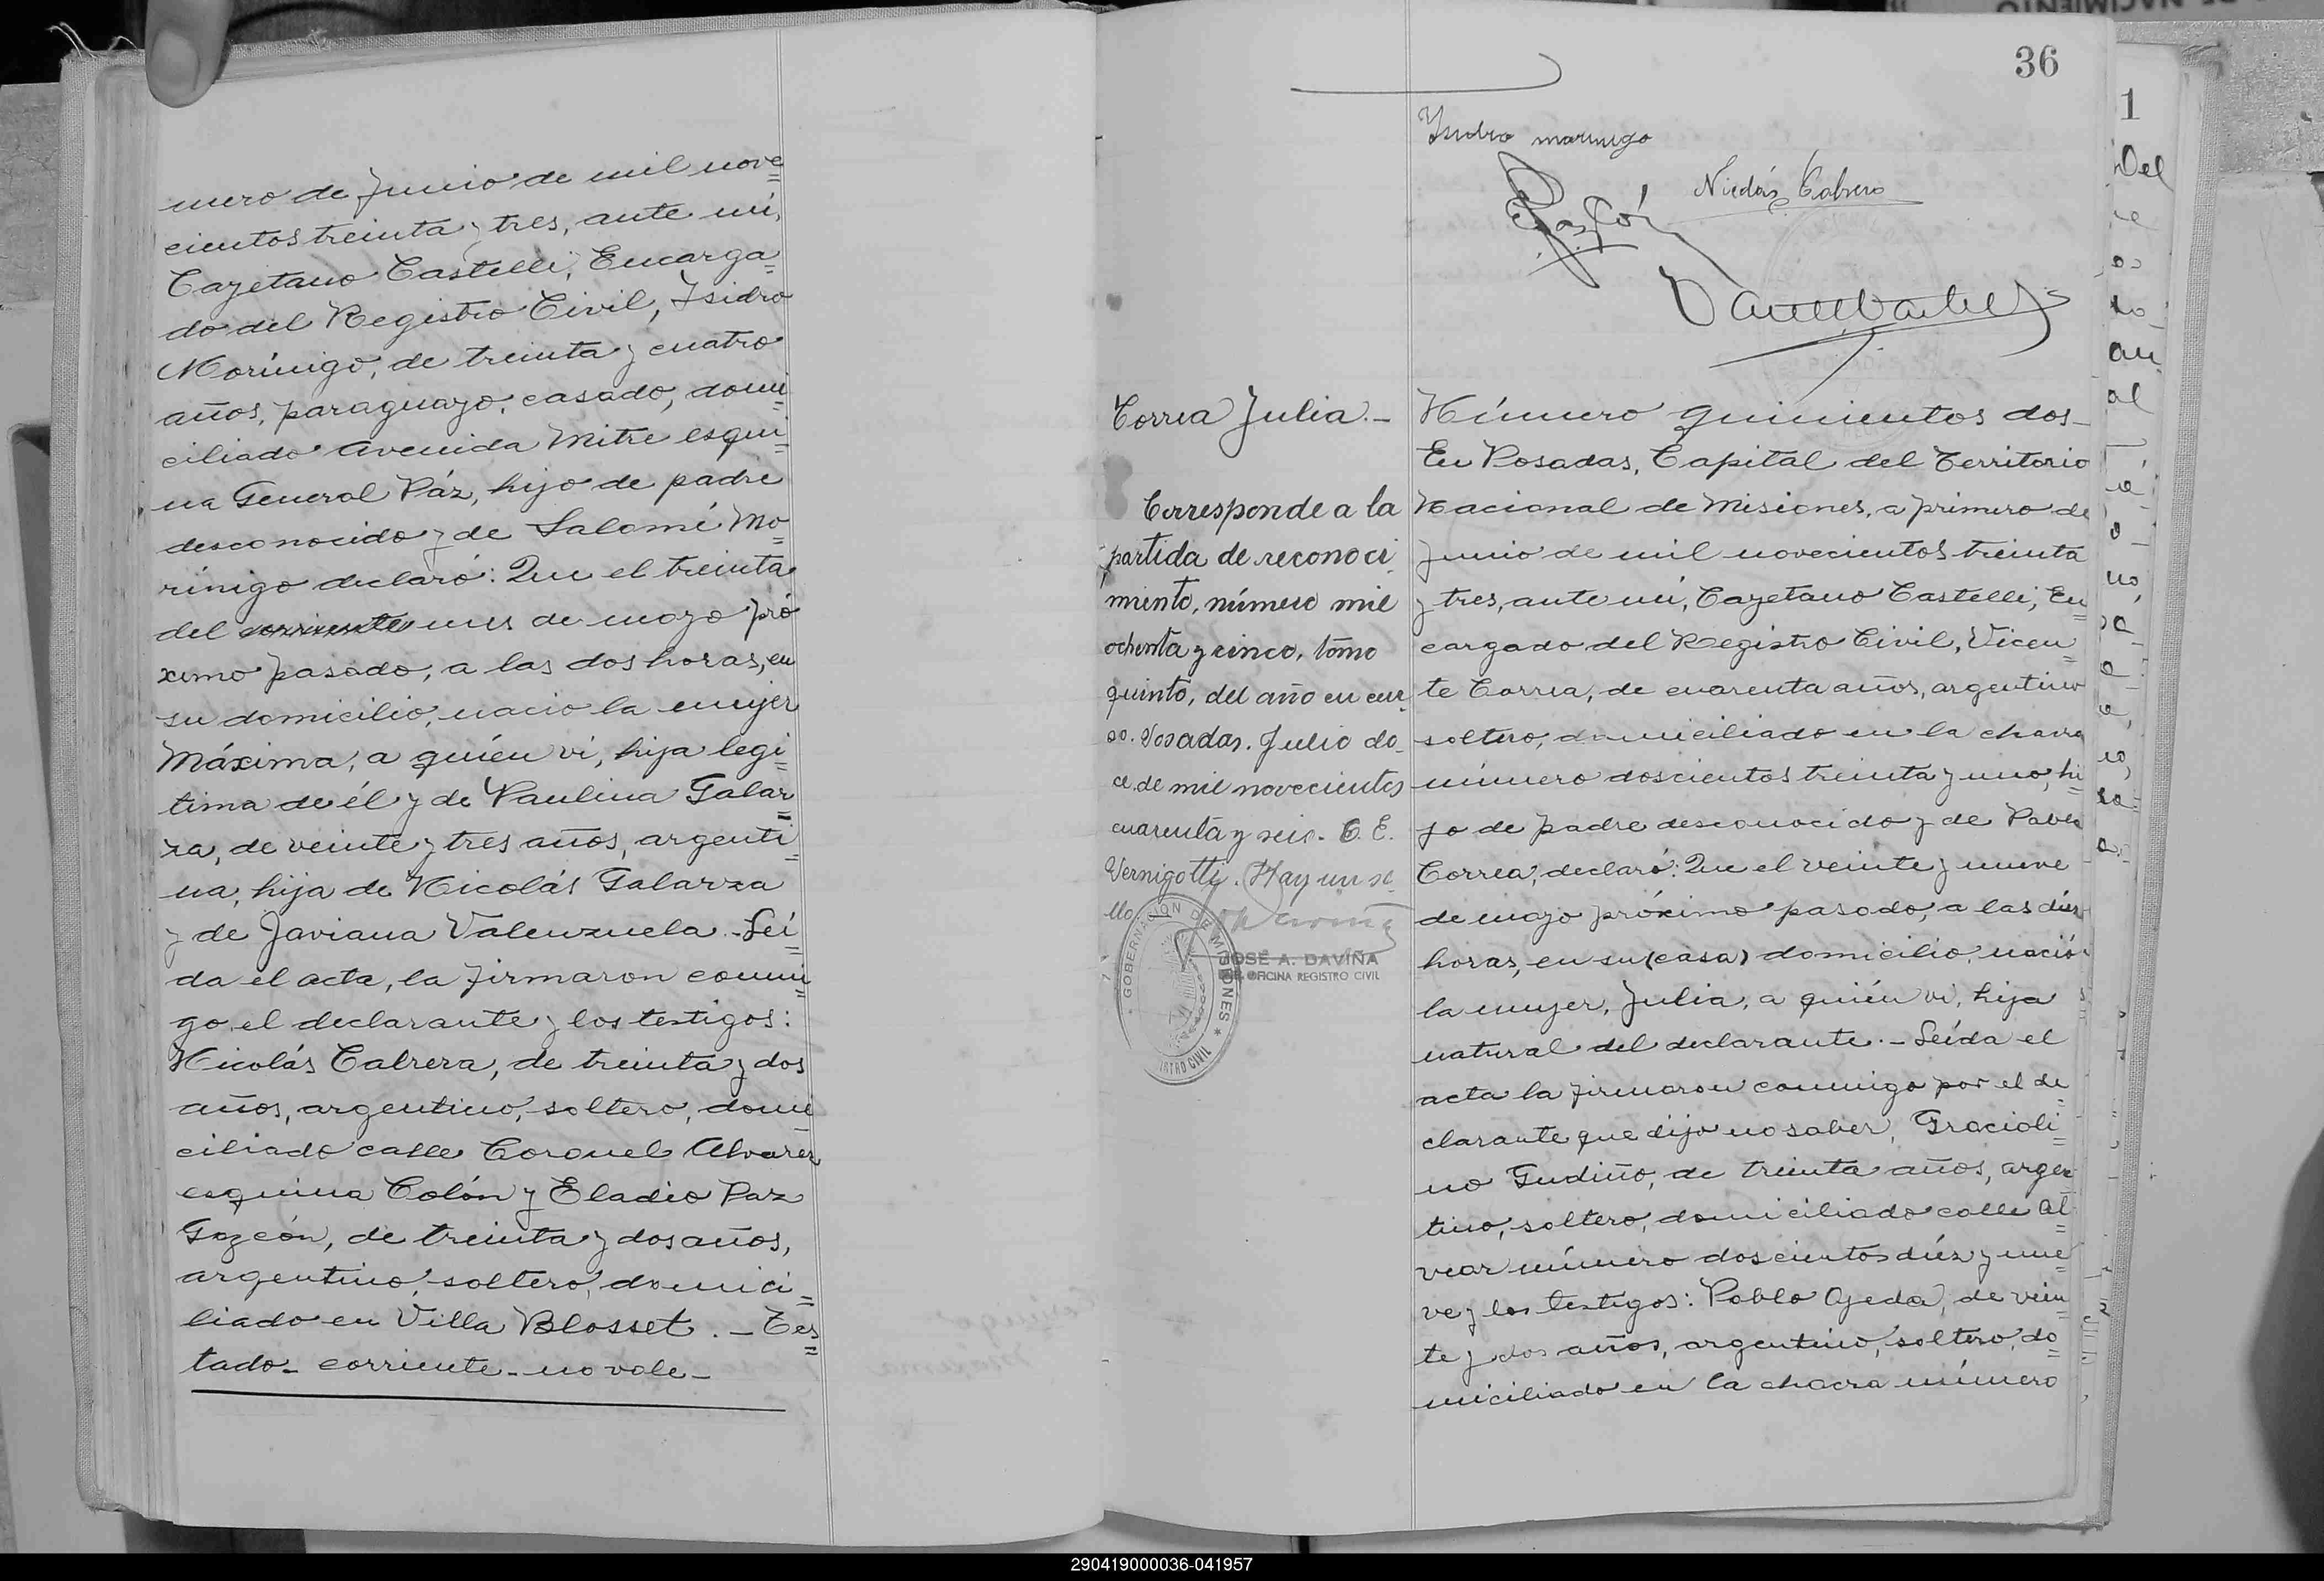 mero de Junio de mil nove=
cientos treinta y tres, ante mí,
Cayetano Castelli, Encarga=
do del Registro Civil, Isidro
Morínigo, de treinta y cuatro
años, paraguayo, casado, domi=
ciliado Avenida Mitre esqui=
na General Páz, hijo de padre
desconocido y de Salomé Mo=
rínigo declaró: Que el treinta
del corriente mes de mayo pró
ximo pasado, a las dos horas, en
su domicilio, nació la mujer
Máxima, a quién vi, hija legi=
tima de él y de Paulina Galar=
za, de veinte y tres años, argenti=
na, hija de Nicolás Galarza
y de Javiana Valenzuela.-Leí=
da el acta, la firmaron conmi=
go, el declarante y los testigos:
Nicolás Cabrera, de treinta y dos
años, argentino, soltero, domi=
ciliado calle Coronel Alvarez
esquina Colón y Eladio Paz
Gazcón, de treinta y dos años,
argentino, soltero, domici=
liado en Villa Blosset.- Tes=
tado- corriente- no vale-
36
Isidro morinigo
Nicolás Cabrera
Correa Julia.-
Corresponde a la
partida de reconoci
miento, número mil
ochenta y cinco, tomo
quinto, del año en cur
so. Posadas. Julio do
ce de mil novecientos
cuarenta y seis- C. E.
Vernigotti. Hay un se
llo.
GOBERNACION DE MISIONES *
REGISTRO CIVIL
JOSÉ A. DAVIÑA
OFICINA REGISTRO CIVIL
Número quinientos dos-
En Posadas, Capital del Territorio
Nacional de Misiones, a primero de
Junio de mil novecientos treinta
y tres, ante mí, Cayetano Castelli, En
cargado del Registro Civil, Vicen=
te Correa, de cuarenta años, argentino
soltero, domiciliado en la chacra
número doscientos treinta y uno, hi=
jo de padre desconocido y de
Correa, declaró: Que el veinte y nueve
de mayo próximo pasado, a las diez
horas, en su (casa) domicilio, nació
la mujer, Julia, a quién vi, hija
natural del declarante.- Leída el
acta la firmaron conmigo por el de=
clarante que dijo no saber, Gracioli=
no Gudiño, de treinta años, argen
tino, soltero, domiciliado calle Al=
vear número doscientos diéz y nue=
ve y los testigos: Pablo Ojeda, de vein
te y dos años, argentino, soltero, do=
miciliado en la chacra número
1
Del
au
al
290419000036-041957